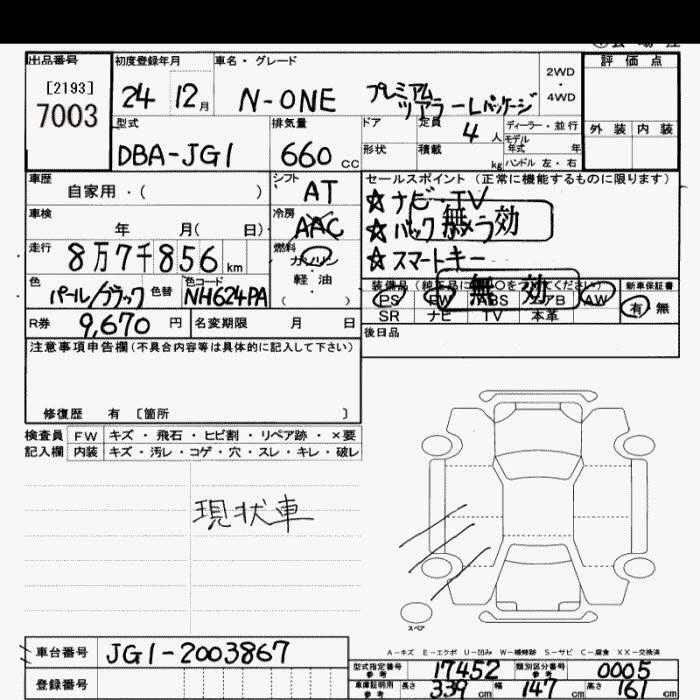 出品番号 初度登録年月 車名・グレード 評価点
[2193]
7003
24 12月 N-ONE プレミアム
ツアラーLパッケージ
2WD
・
4WD
型式 排気量 ドア 定員 ディーラー・並行 外装 内装
DBA-JG1 660 cc 4人 モデル年式 年
形状 積載 kg ハンドル 左・右
車歴 自家用・( ) シフト AT セールスポイント (正常に機能するものに限ります)
☆ナビ・TV
車検 年 月( 日) 冷房 AAC
☆バックカメラ 無効
走行 8万7千856km 燃料 ガソリン
軽油
( )
☆スマートキー
色 パール/ブラック 色替 色コード NH624PA
無効
PS PW ABS エアB AW
SR ナビ TV 本革
新車保証書
有 無
R券 9,670円 名変期限 月 日 後日品
注意事項申告欄(不具合内容等は具体的に記入して下さい)
修復歴 有 〔箇所 〕
検査員 FW キズ・飛石・ヒビ割・リペア跡・×要
記入欄 内装 キズ・汚レ・コゲ・穴・スレ・キレ・破レ
現状車
スペア
A-キズ E-エクボ U-凹み W-補修跡 S-サビ C-腐食 XX-交換済
車台番号 JG1-2003867
型式指定番号参考 17452 類別区分番号参考 0005
登録番号
車庫証明用参考 長さ 339cm 幅 147cm 高さ 161cm